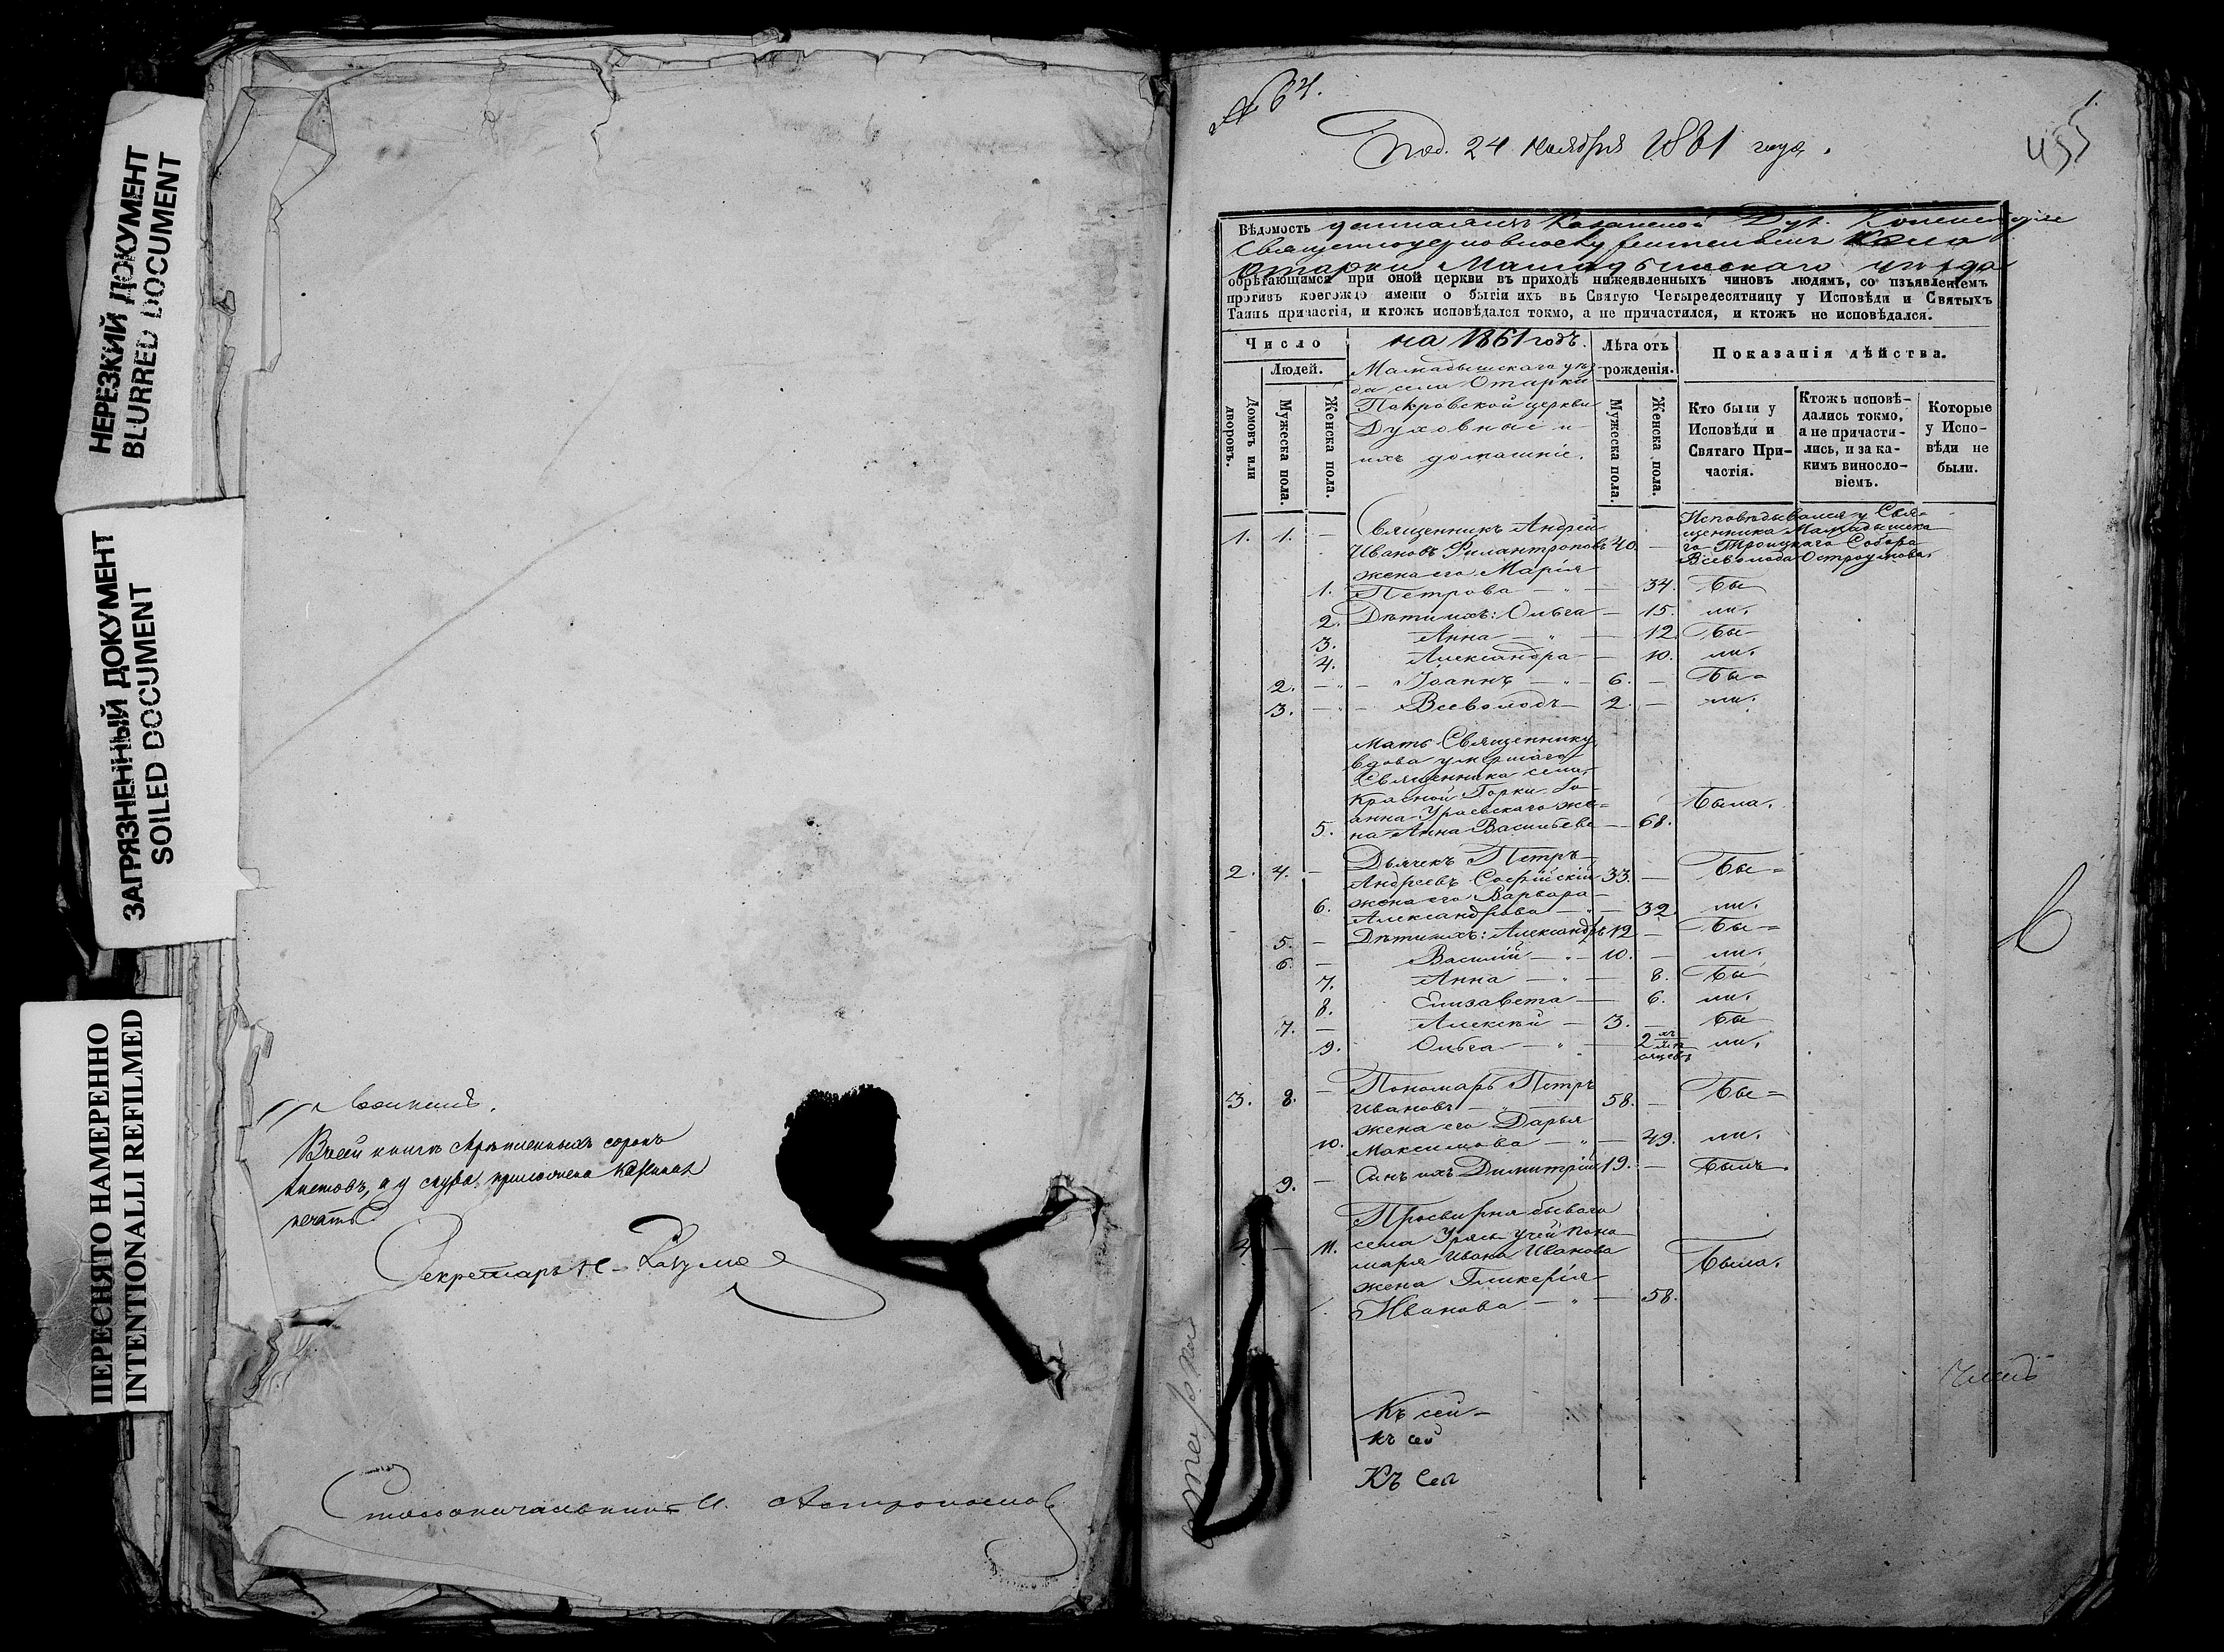 НЕРЕЗКИЙ ДОКУМЕНТ
BLURRED DOCUMENT
ЗАГРЯЗНЕННЫЙ ДОКУМЕНТ
SOILED DOCUMENT
ПЕРЕСНЯТО НАМЕРЕННО
INTENTIONALLI REFILMED
листовъ, а у снура приложена казенная
печать
Секретарь
Столоначальникъ И.
№ 64.
1.
Под. 24 Ноября 1861 года.
455
Вѣдомость Казанской Дух.
Священноцерковнослу
Отарки Мамадышскаго уѣзда
обрѣтающимся при оной церкви въ приходѣ нижеявленныхъ чиновъ людямъ, со изъявленіемъ
противъ коегождо имени о бытіи ихъ въ Святую Четыредесятницу у Исповѣди и Святыхъ
Таинъ причастія, и ктожъ исповѣдался токмо, а не причастился, и ктожъ не исповѣдался.
Число
Людей.
Домовъ или дворовъ.
Мужеска пола.
Женска пола.
на 1861 годъ.
Мамадышскаго уѣз
да села Отарки
Покровской церкви
Духовные и
ихъ домашніе.
Лѣта отъ рожденія.
Мужеска пола.
Женска пола.
Показанія дѣйства.
Кто были у Исповѣди и Святаго Причастія.
Ктожъ исповѣдались токмо, а не причастились, и за какимъ винословіемъ.
Которые у Исповѣди не были.
1. 1. — Священникъ Андрей
Ивановъ Филантроповъ 40. —
Исповѣдывался у Свя-
щенника Мамадышска
го Троицкаго Собора
Всеволода Остроумова.
жена его Марія
1. Петрова — 34. Бы
2. Дѣти ихъ: Ольга — 15. ли.
3. Анна — 12. Бы-
4. Александра — 10. ли.
2. — Іоаннъ — 6. — Бы-
3. — Всеволодъ — 2. — ли.
Мать Священнику,
вдова умершаго
Священника села
Красной Горки Іо-
анна Ураевскаго же-
5. на Анна Васильева — 68. Была.
2. 4. — Дьячекъ Петръ
Андреевъ Софійскій 33. — Бы-
жена его Варвара
6. Александрова — 32. ли.
5. — Дѣти ихъ: Александръ 12 — Бы-
6. — Василій — 10. — ли.
7. Анна — 8. Бы
8. Елизавета — 6. ли.
7. — Алексѣй — 3. — Бы
9. Ольга — 2 ли.
3. 8. — Пономарь Петръ
Ивановъ — 58. — Бы-
жена его Дарья
10. Максимова — 49. ли.
9. — Сынъ ихъ Димитрій 19. — Былъ.
Просвирня бывшаго
4. — 11. села Урясь Учей поно
маря Ивана Иванова
жена Гликерія Была.
Иванова — 58.
Къ сей-
къ сей
Къ сей